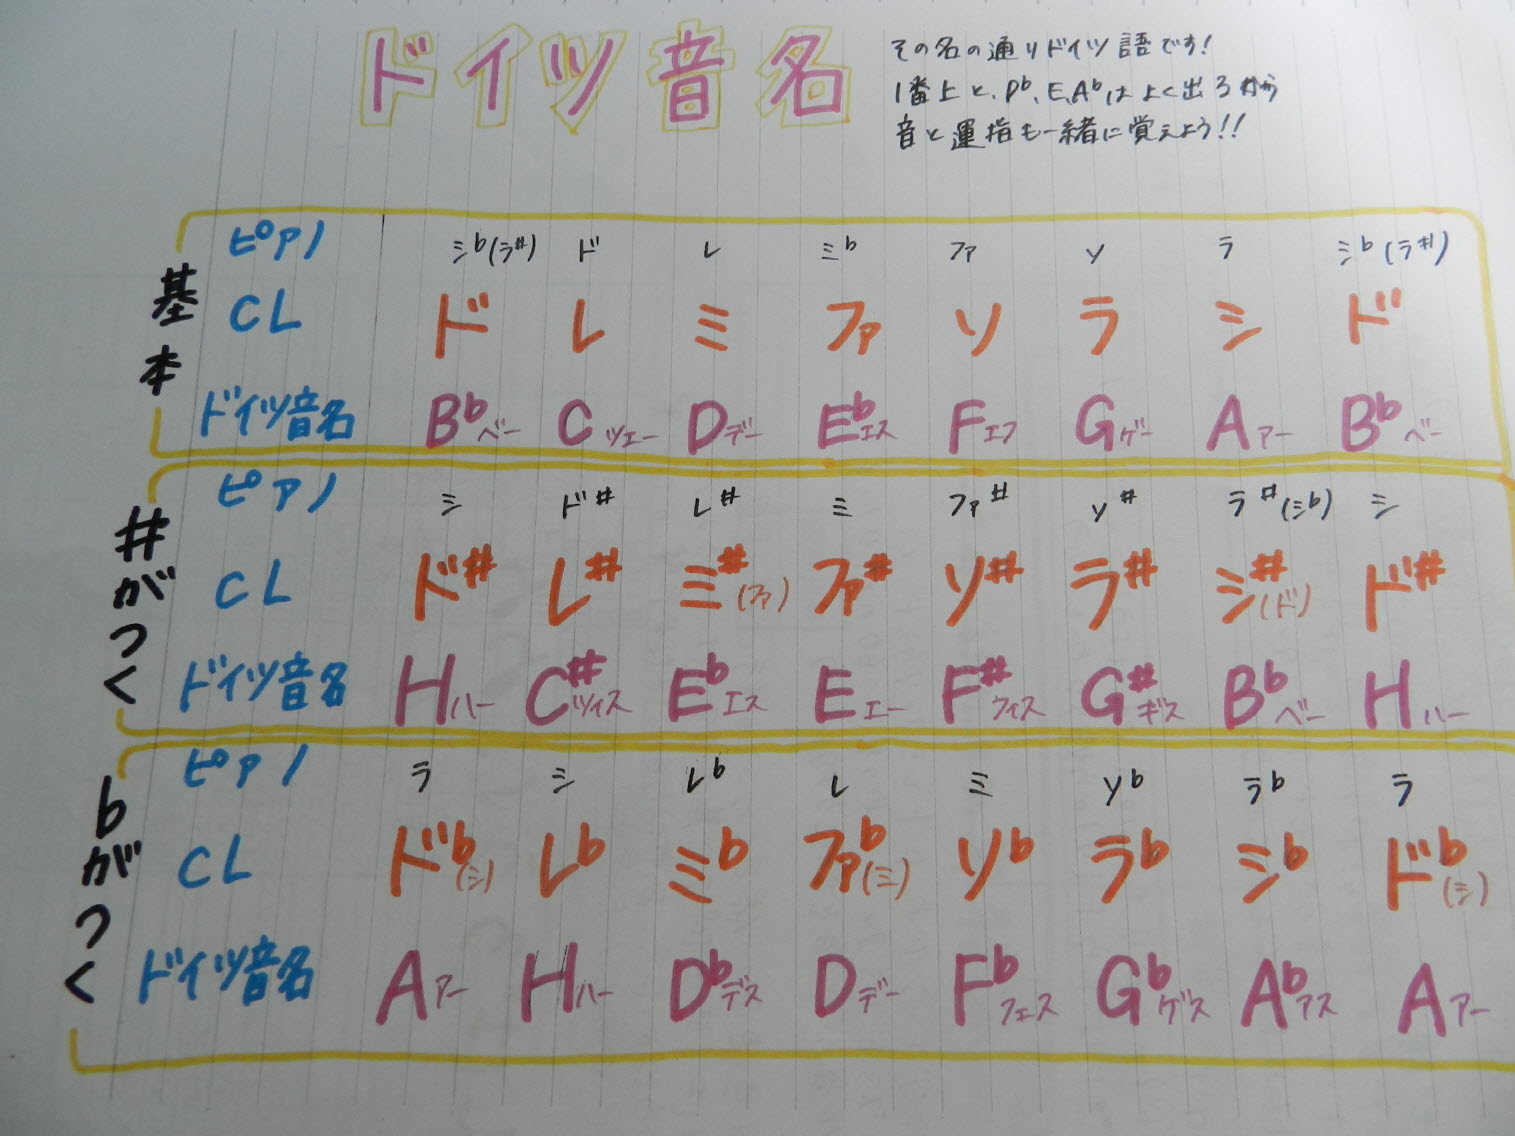 ドイツ音名
その名の通りドイツ語です!
1番上と、D♭、E、A♭はよく出るから
音と運指も一緒に覚えよう!!
基本
ピアノ シ♭(ラ#) ド レ ミ♭ ファ ソ ラ シ♭(ラ#)
CL ド レ ミ ファ ソ ラ シ ド
ドイツ音名 B♭ベー Cツェー Dデー E♭エス Fエフ Gゲー Aアー B♭ベー
#がつく
ピアノ シ ド# レ# ミ ファ# ソ# ラ#(シ♭) シ
CL ド# レ# ミ#(ファ) ファ# ソ# ラ# シ#(ド) ド#
ドイツ音名 Hハー C#ツィス E♭エス Eエー F#フィス G#ギス B♭ベー Hハー
♭がつく
ピアノ ラ シ レ♭ レ ミ ソ♭ ラ♭ ラ
CL ド♭(シ) レ♭ ミ♭ ファ♭(ミ) ソ♭ ラ♭ シ♭ ド♭(シ)
ドイツ音名 Aアー Hハー D♭デス Dデー F♭フェス G♭ゲス A♭アス Aアー